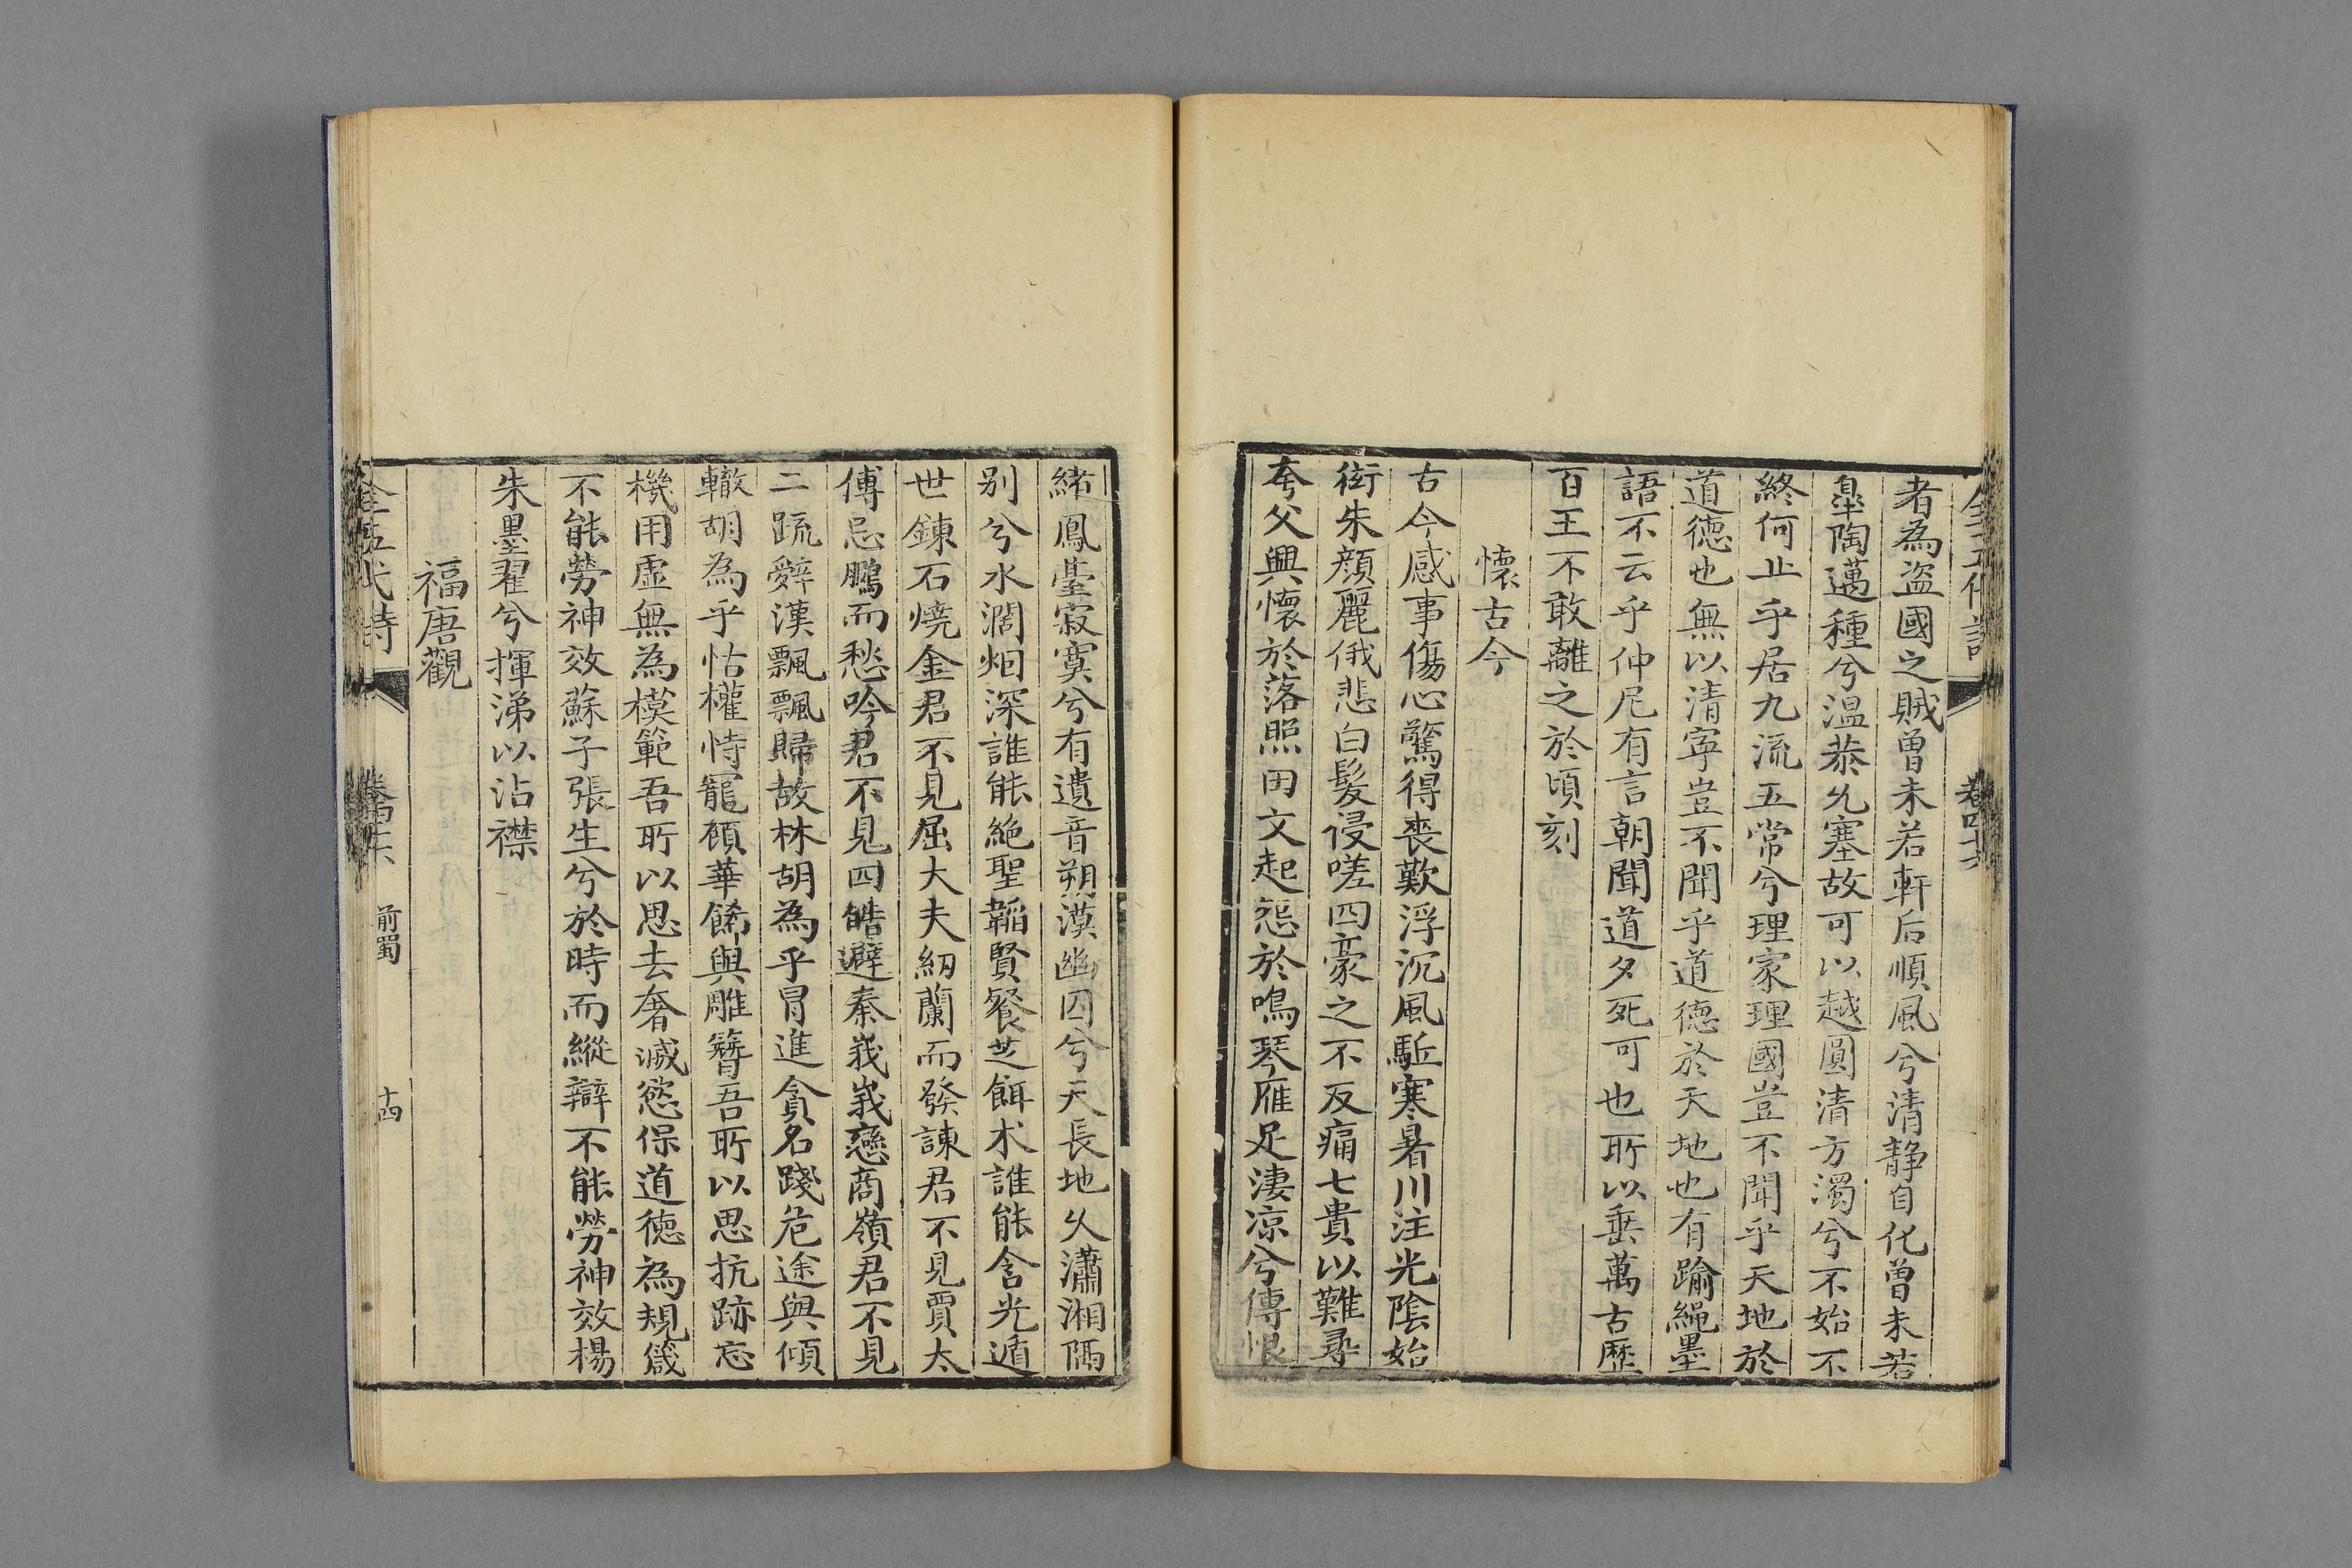 者為盗國之賊曽未若軒后順風兮清静自化曽未若
臯陶邁種兮温恭允塞故可以越圓清方濁兮不始不
終何止乎居九流五常兮理家理國豈不聞乎天地於
道德也無以清寧豈不聞乎道德於天地也有踰繩墨
語不云乎仲尼有言朝聞道夕死可也所以垂萬古歴
百王不敢離之於頃刻
懷古今
古今感事傷心驚得喪歎浮沉風駈寒暑川注光陰始
衒朱顔麗俄悲白髮侵嗟四豪之不反痛七貴以難尋
夸父興懷於落照田文起怨於鳴琴雁足淒凉兮傳恨
緒鳳臺寂寞兮有遺音朔漠幽囚兮天長地久瀟湘隔
别兮水濶烟深誰能絶聖韜賢餐芝餌术誰能含光遁
世鍊石燒金君不見屈大夫紉蘭而發諫君不見賈太
傅忌鵩而愁吟君不見四皓避秦峩峩戀商嶺君不見
二疏辭漢飄飄歸故林胡為乎冒進貪名踐危途與傾
轍胡為乎怙權恃寵顧華飾與雕簪吾所以思抗跡忘
機用虛無為模範吾所以思去奢滅慾保道德為規箴
不能勞神效蘇子張生兮於時而縱辯不能勞神效楊
朱墨翟兮揮涕以沾襟
福唐觀
全五代詩
前蜀
十四